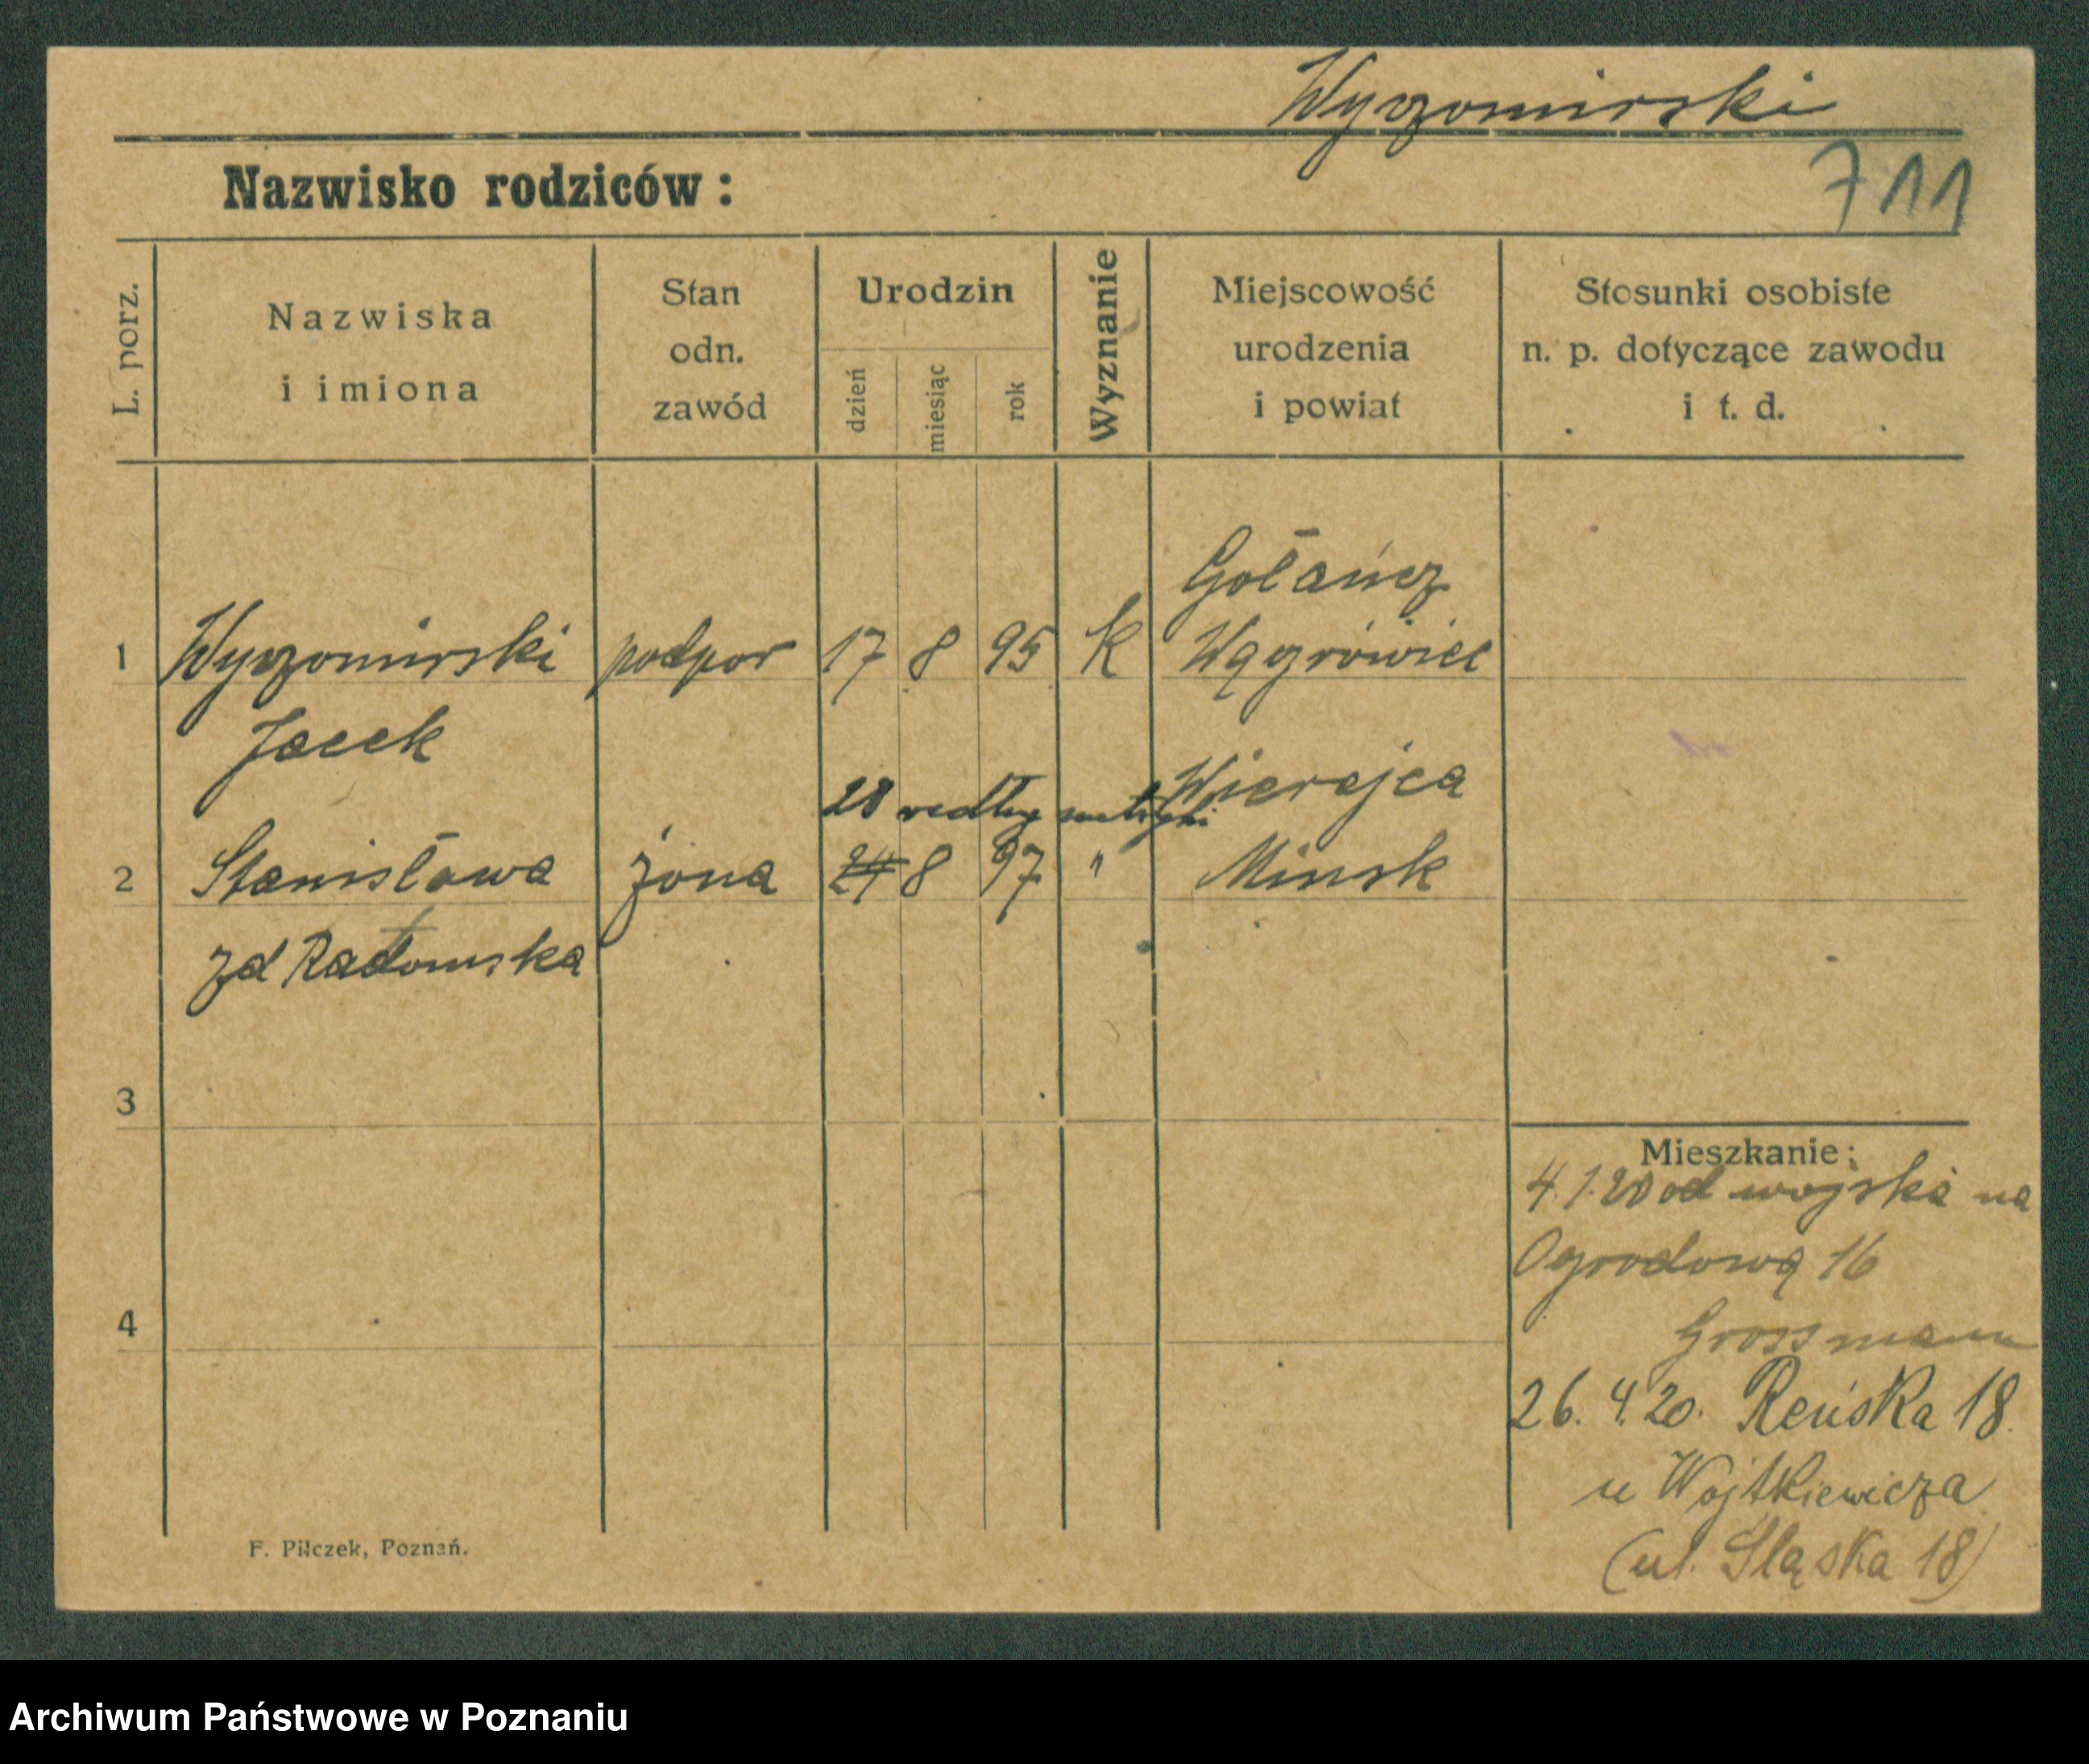 Wyczomirski
711
Nazwisko rodziców:
L. porz.
Nazwiska
i imiona
Stan
odn.
zawód
Urodzin
dzień
miesiąc
rok
Wyznanie
Miejscowość
urodzenia
i powiat
Stosunki osobiste
n. p. dotyczące zawodu
i t. d.
Gołańcz
1 Wyczomirski podpor 17 8 95 K Wągrówiec
Jacek
Wierejca
28 według metryki
2 Stanisława żona 24 8 97 " Minsk
zd Radomska
3
4
Mieszkanie:
4.1.20 od wojska na
Ogrodową 16
Grossmann
26. 4. 20. Reńska 18.
u Wojtkiewicza
(ul. Śląska 18)
F. Piłczek, Poznań.
Archiwum Państwowe w Poznaniu